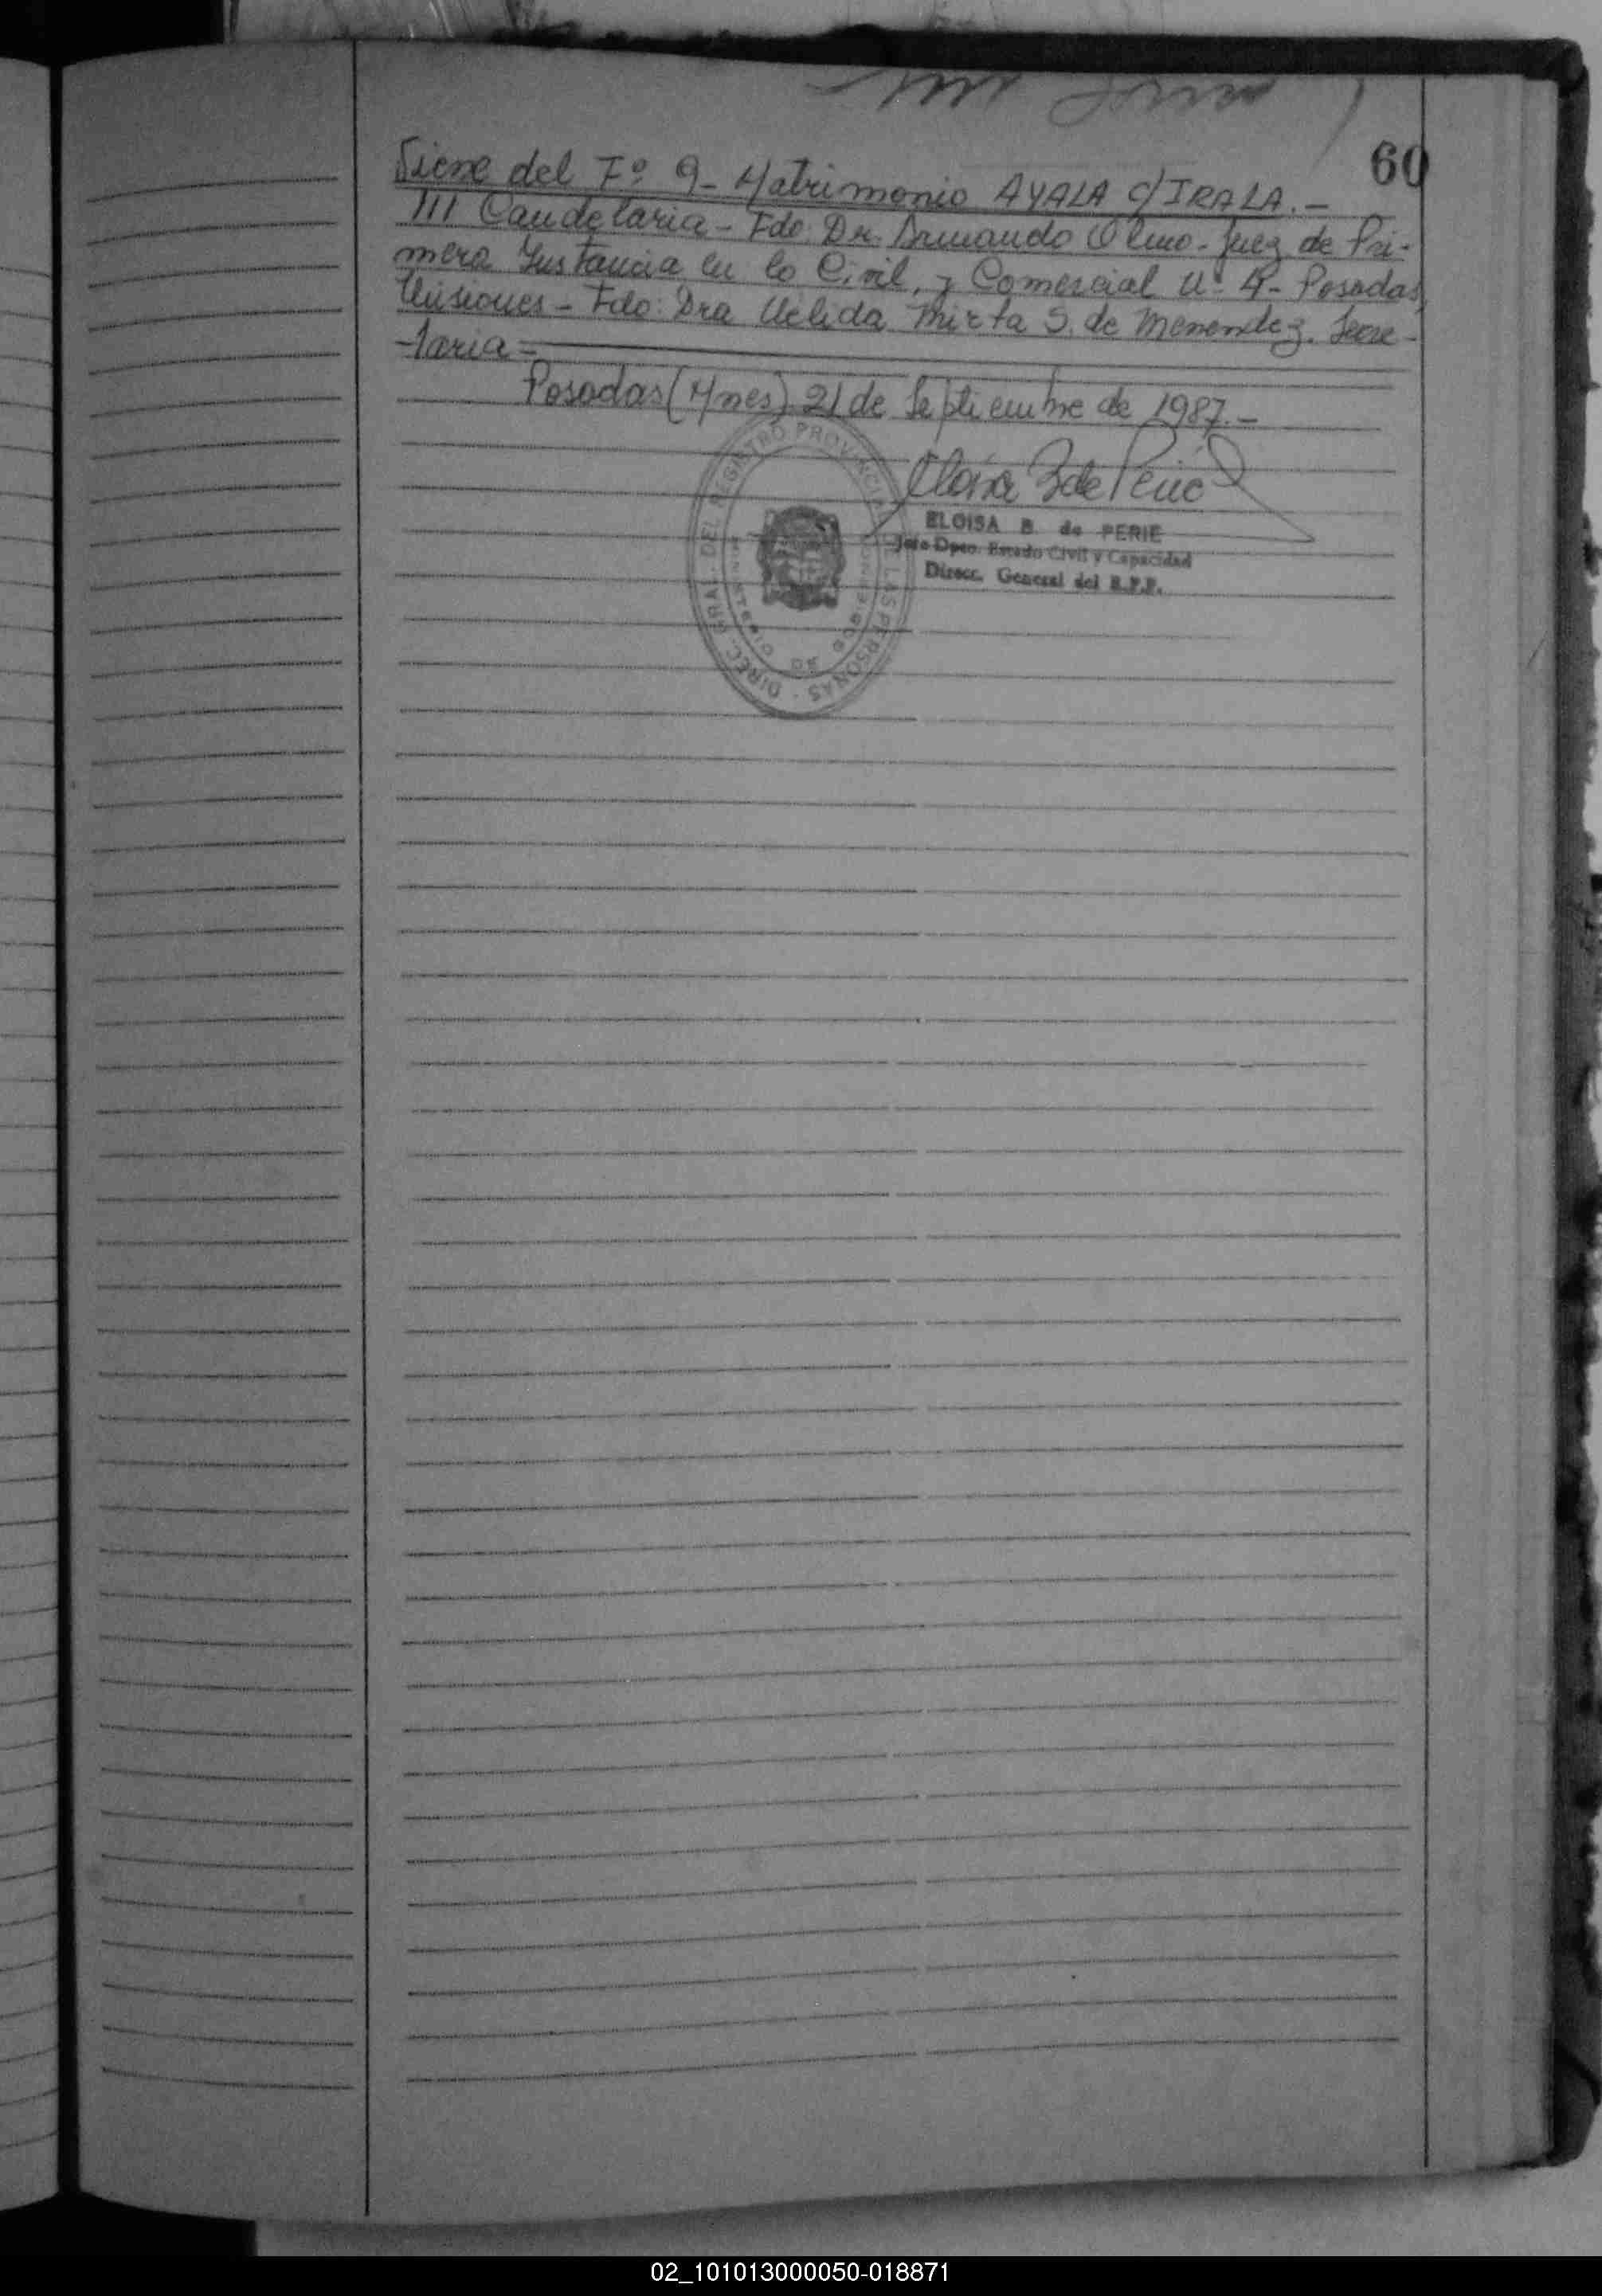 60
Viene del Fº 9- Matrimonio AYALA c/ IRALA.-
/// Candelaria - Fdo: Dr. Armando Olmo - Juez de Pri-
mera Instancia en lo Civil, y Comercial Nº 4- Posadas,
Misiones - Fdo: Dra Nelida Mirta S. de Menendez. Secre-
-taria-
Posadas (Mnes) 21 de Septiembre de 1987.-
ELOISA B. de PERIE
Jefe Dpto. Estado Civil y Capacidad
Direcc. General del R.P.P.
DIREC. GRAL. DEL REGISTRO PROVINCIAL DE LAS PERSONAS
MINISTERIO DE GOBIERNO
02_101013000050-018871